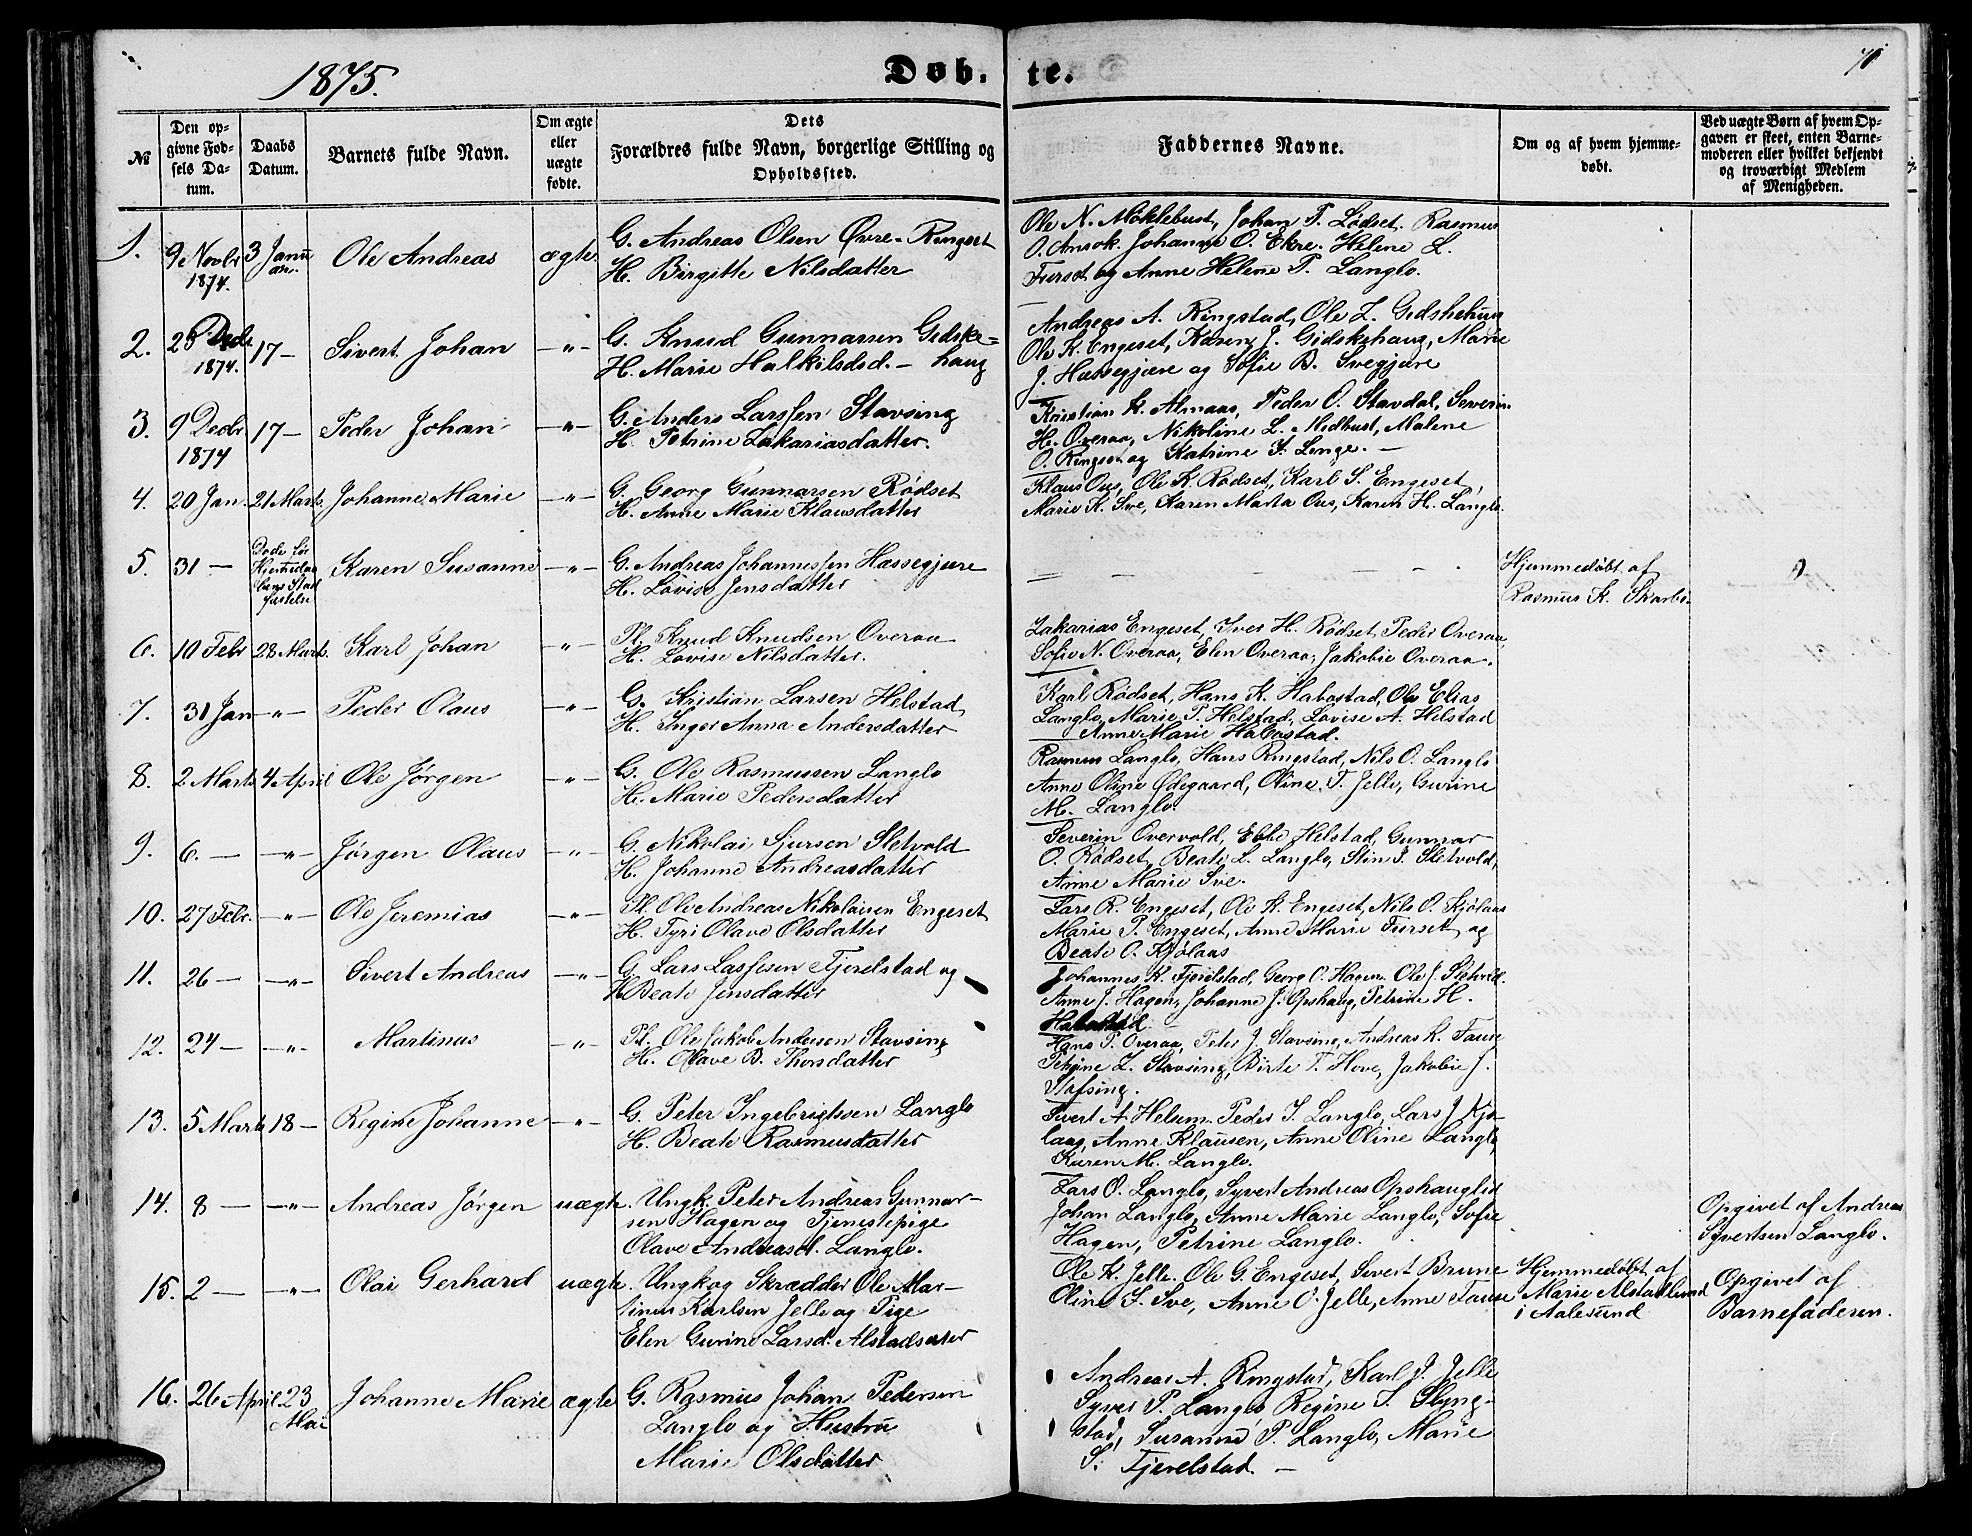 1875.
Døb. te.
70
№
Den opgivne Fødsels Datum.
Daabs Datum.
Barnets fulde Navn.
Om ægte eller uægte fødte.
Dets Forældres fulde Navn, borgerlige Stilling og Opholdssted.
Faddernes Navne.
Om og af hvem hjemmedøbt.
Ved uægte Børn af hvem Opgaven er skeet, enten Barnemoderen eller hvilket bekjendt og troværdigt Medlem af Menigheden.
1. 9 Novbr 1874. 3 Januar. Ole Andreas ægte
G. Andreas Olsen Øvre-Ringset
H. Birgitte Nilsdatter
Ole N. Møklebust, Johan T. Lødset, Rasmus
O. Ansok. Johanne O. Ekre. Helene L.
Furset og Anne Helene P. Langlo.
2. 26 Decbr 1874. 17 – Sivert Johan – " –
G. Knud Gunnarsen Gidske-
H. Marie Halkilsdtd. – haug
Andreas A. Ringstad, Ole L. Gidskehaug
Ole K. Engeset, Karen J. Gidskehaug, Marie
J. Hassegjære og Sofie B. Svegjære
3. 9 Decbr 1874 17 – Peder Johan – " –
G. Anders Larssen Stavsing
H. Petrine Zakariasdatter.
Kristian K. Almaas, Peder O. Stavdal, Severin
H. Overaa, Nikoline L. Midbust, Malene
O. Ringset og Katrine I. Longe. –
4. 20 Jan. 21 Marts. Johanne Marie – " –
G. Georg Gunnarsen Rødset
H. Anne Marie Klausdatter
Klaus Ous, Ole K. Rødset, Karl S. Engeset,
Marie K. Sve, Karen Marta Ous, Karen H. Langlo.
5. 31 – Døde før Hjemmedaabens Stadfæstelse Karen Susanne – " –
G. Andreas Johannessen Hassegjære
H. Lovise Jensdatter
Hjemmedøbt af
Rasmus K. Skarbø.
6. 10 Febr 28 Marts. Karl Johan – " –
Pl. Knud Knudsen Overaa
H. Lovise Nilsdatter.
Zakarias Engeset, Iver H. Rødset, Peder Overaa,
Sofie N. Overaa, Elen Overaa, Jakobie Overaa.
7. 31 Jan – " – Peder Olaus – " –
G. Kristian Larsen Helstad
H. Inger Anna Andersdatter
Karl Rødset, Hans K. Habostad, Ole Elias
Langlo, Marie P. Helstad, Lovise A. Helstad
Anne Marie Habostad.
8. 2 Marts 4 April Ole Jørgen – " –
G. Ole Rasmussen Langlo
H. Marie Pedersdatter
Rasmus Langlo, Hans Ringstad, Nils O. Langlo
Anne Oline Ødegaard, Oline T. Jelle, Gurine
M. Langlo.
9. 6. – – " – Jørgen Olaus – " –
G. Nikolai Sjursen Sletvold
H. Johanne Andreasdatter
Severin Overvold, Ebbe Helstad, Gunnar
O. Rødset, Beate L. Langlo, Stin J. Sletvold,
Anne Marie Sve.
10. 27 Febr. – " – Ole Jeremias – " –
Pl. Ole Andreas Nikolaisen Engeset
H. Tyri Olave Olsdatter
Lars R. Engeset, Ole K. Engeset, Nils O. Kjølaas
Marie P. Engeset, Anne Marie Furset og
Beate O. Kjølaas
11. 26 – – " – Sivert Andreas – " –
G. Lars Lassesen Fjerelstad og
H. Beate Jensdatter
Johannes K. Fjørelstad, Georg O. Hagen. Ole J. Sletvold.
Anne J. Hagen, Johanne J. Opshaug, Petrine H.
Habostad
12. 24 – – " – Martinus – " –
Pl. Ole Jakob Andersen Stavsing
H. Olave B. Thorsdatter
Hans P. Overaa, Peter J. Stavsing, Andreas K. Fause
Petrine L. Stavsing, Birte T. Hove, Jakobie J.
Stafsing.
13. 5 Marts 18 – Regine Johanne – " –
G. Peter Ingebrigtsen Langlo
H. Beate Rasmusdatter
Sivert A. Helsem. Peder I. Langlo, Lars J. Kjø-
laas, Anne Klausen, Anne Oline Langlo,
Karen M. Langlo.
14. 8 – – " – Andreas Jørgen uægte.
Ungk. Peter Andreas Gunnar-
sen Hagen og Tjenestepige
Olave Andreasd. Langlo.
Lars O. Langlo, Syvert Andreas Opshauglid
Johan Langlo, Anne Marie Langlo, Sofie
Hagen, Petrine Langlo.
Opgivet af Andreas
Syvertsen Langlo.
15. 2 – – " – Olai Gerhard uægte.
Ungk og Skrædder Ole Mar-
tinus Karlsen Jelle og Pige
Elen Gurine Larsd. Alstadsæter
Ole K. Jelle. Ole G. Engeset, Sivert Brune
Oline S. Sve, Anne O. Jelle, Anne Fause
Hjemmedøbt af
Marie Alstadlund
i Aalesund
Opgivet af
Barnefaderen.
16. 26 April 23 Mai Johanne Marie ægte
G. Rasmus Johan Pedersen
Langlo og Hustru
Marie Olsdatter
Andreas A. Ringstad, Karl J. Jelle
Syver P. Langlo Regine S. Slyng-
stad, Susanne P. Langlo, Marie
S. Fjerelstad. –